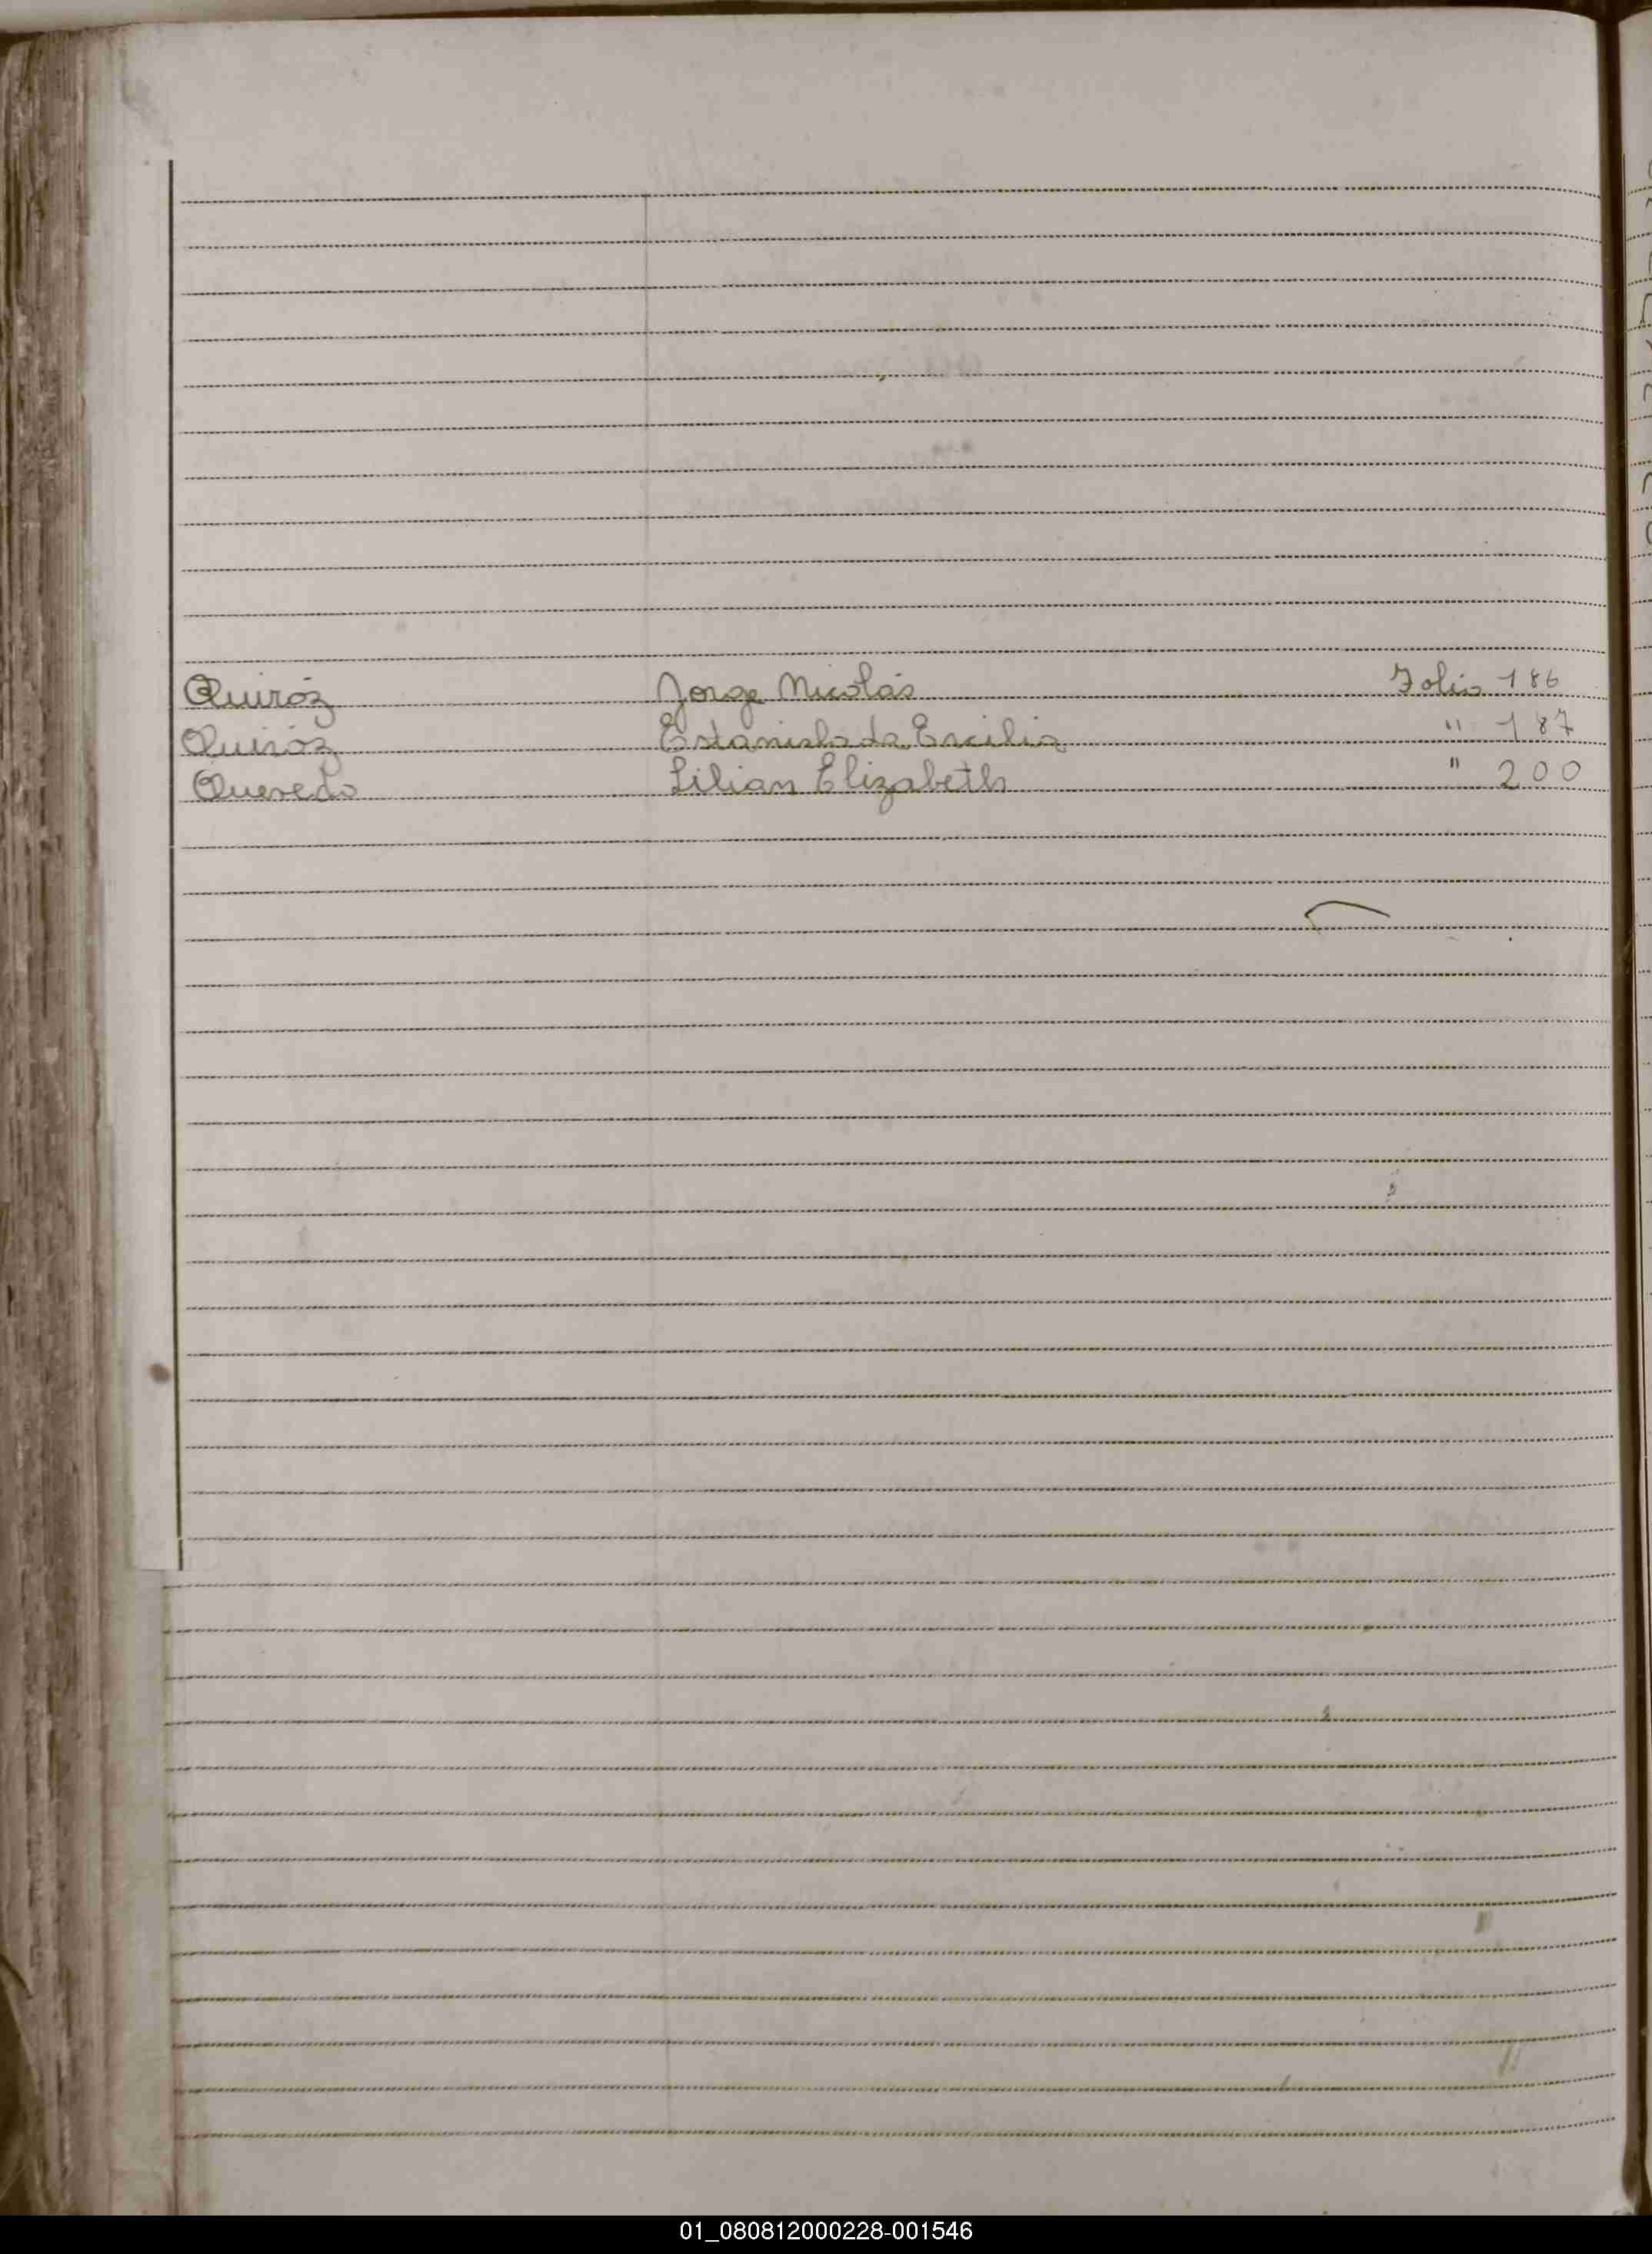 Quiróz Jorge Nicolás Folio 186
Quiróz Estanislada Ercilia " 187
Quevedo Lilian Elizabeth " 200
01_080812000228-001546